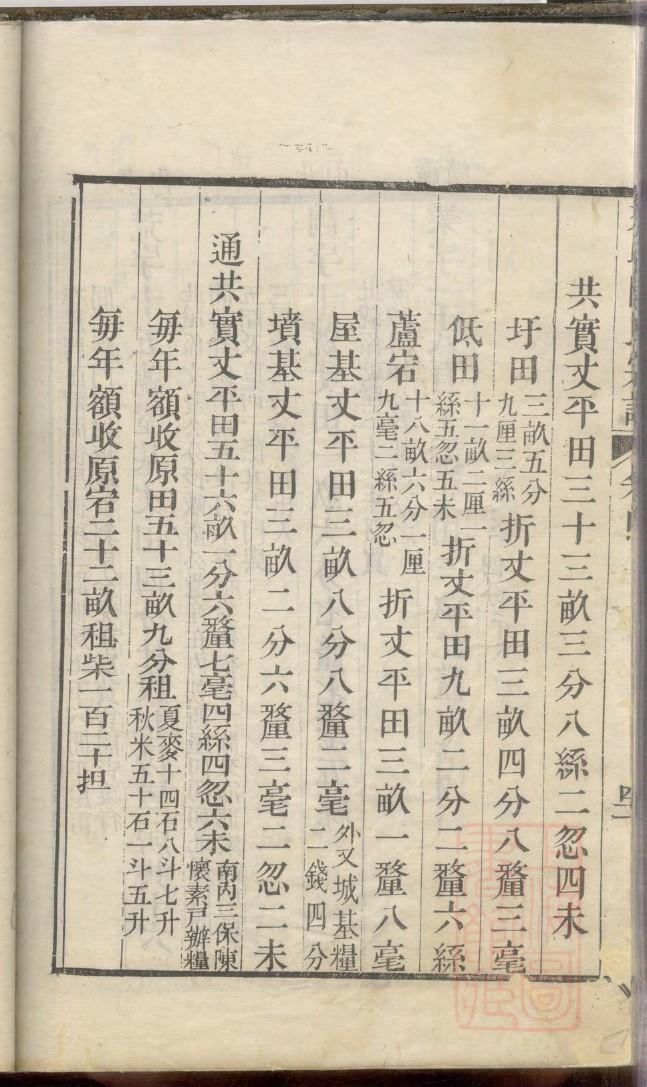 共實丈平田三十三畝三分八絲二忽四未
圩田三畝五分九厘三絲折丈平田三畝四分八釐三毫
低田十一畝二厘一絲五忽五未折丈平田九畝二分二釐六絲
蘆宕十八畝六分一厘九毫二絲五忽折丈平田三畝一釐八毫
屋基丈平田三畝八分八釐二毫外又城基糧二錢四分
墳基丈平田三畝二分六釐三毫二忽二未
通共實丈平田五十六畝一分六釐七毫四絲四忽六未南內三保陳懷素戸辦糧
每年額收原田五十三畝九分租夏麥十四石八斗七升秋米五十石一斗五升
每年額收原宕二十二畝租柴一百二十担